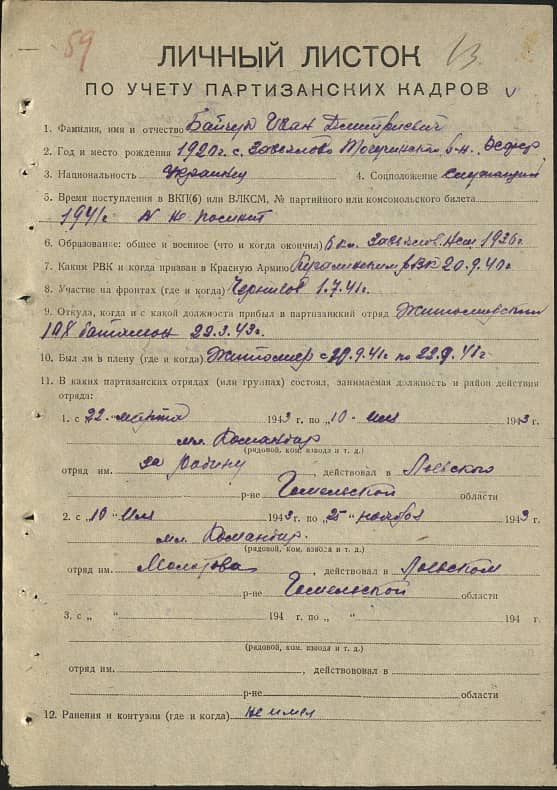 59
13
ЛИЧНЫЙ ЛИСТОК
ПО УЧЕТУ ПАРТИЗАНСКИХ КАДРОВ
1. Фамилия, имя и отчество Байчук Иван Дмитриевич
2. Год и место рождения 1920 г. с. Завьялово р-н.
3. Национальность Украинец 4. Соцположение служащий
5. Время поступления в ВКП(б) или ВЛКСМ, № партийного или комсомольского билета
1941 г. № не помнит
6. Образование: общее и военное (что и когда окончил) 6 кл. Завьялов. 1936 г.
7. Каким РВК и когда призван в Красную Армию РВК 20.9.40 г.
8. Участие на фронтах (где и когда) Чернигов 1.7.41 г.
9. Откуда, когда и с какой должности прибыл в партизанский отряд Житомирский
батальон 22.3.43 г.
10. Был ли в плену (где и когда) Житомир с 20.9.41 г. по 22.9.41 г.
11. В каких партизанских отрядах (или группах) состоял, занимаемая должность и район действия
отряда:
1. с „22“ марта 1943 г. по „10“ мая 1943 г.
мл. Командир
(рядовой, ком. взвода и т. д.)
отряд им. За Родину, действовал в Лоевского
р-не Гомельской области
2. с „10“ мая 1943 г. по „25“ ноября 1943 г.
мл. Командир
(рядовой, ком. взвода и т. д.)
отряд им. Молотова, действовал в Лоевском
р-не Гомельской области
3. с „ “ 194 г. по „ “ 194 г.
(рядовой, ком. взвода и т. д.)
отряд им. , действовал в
р-не области
12. Ранения и контузии (где и когда) не имел